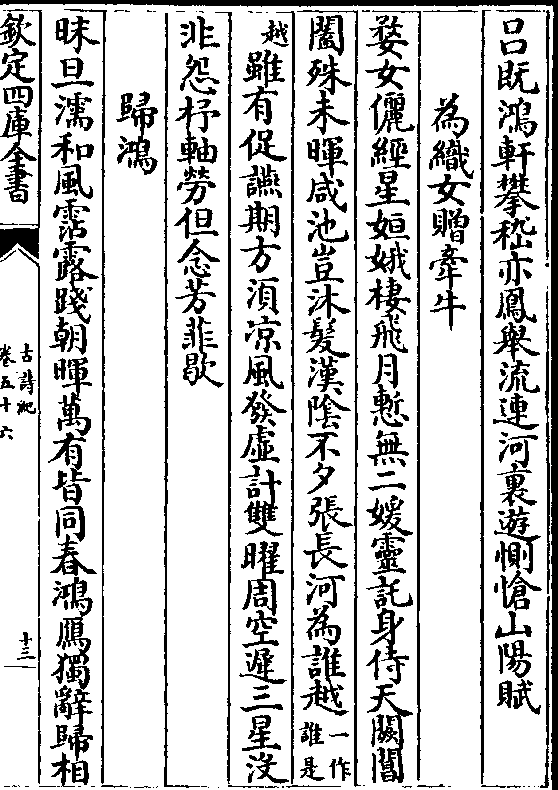 吕既鴻軒攀嵇亦鳳舉流連河裏遊惻愴山陽賦
為織女贈牽牛
婺女儷經星姮娥棲飛月慙無二媛靈託身侍天闕閶
闔殊未暉咸池豈沐髮漢陰不夕張長河為誰越一作誰是
越雖有促讌期方湏凉風發虚計雙曜周空遲三星没
非怨杼軸勞但念芳菲歇
歸鴻
昧旦濡和風霑露踐朝暉萬有皆同春鴻鴈獨辭歸相
欽定四庫全書
古詩紀
卷五十六
十三